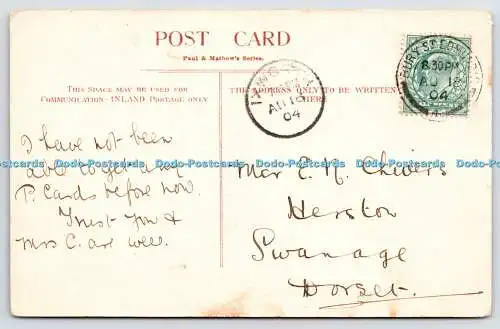 POST CARD
Paul & Mathew's Series.
THIS SPACE MAY BE USED FOR
COMMUNICATION—INLAND POSTAGE ONLY
THE ADDRESS ONLY TO BE WRITTEN
HERE
BURY ST EDMUNDS
8.30 PM
AU 18
04
AU 18
04
I have not been
able to get any
P. Cards before now.
Trust you &
Mrs C. are well.
Mr E. N.
Herston
Swanage
Dorset.
Dodo-Postcards Dodo-Postcards Dodo-Postcards Dodo-Postcards